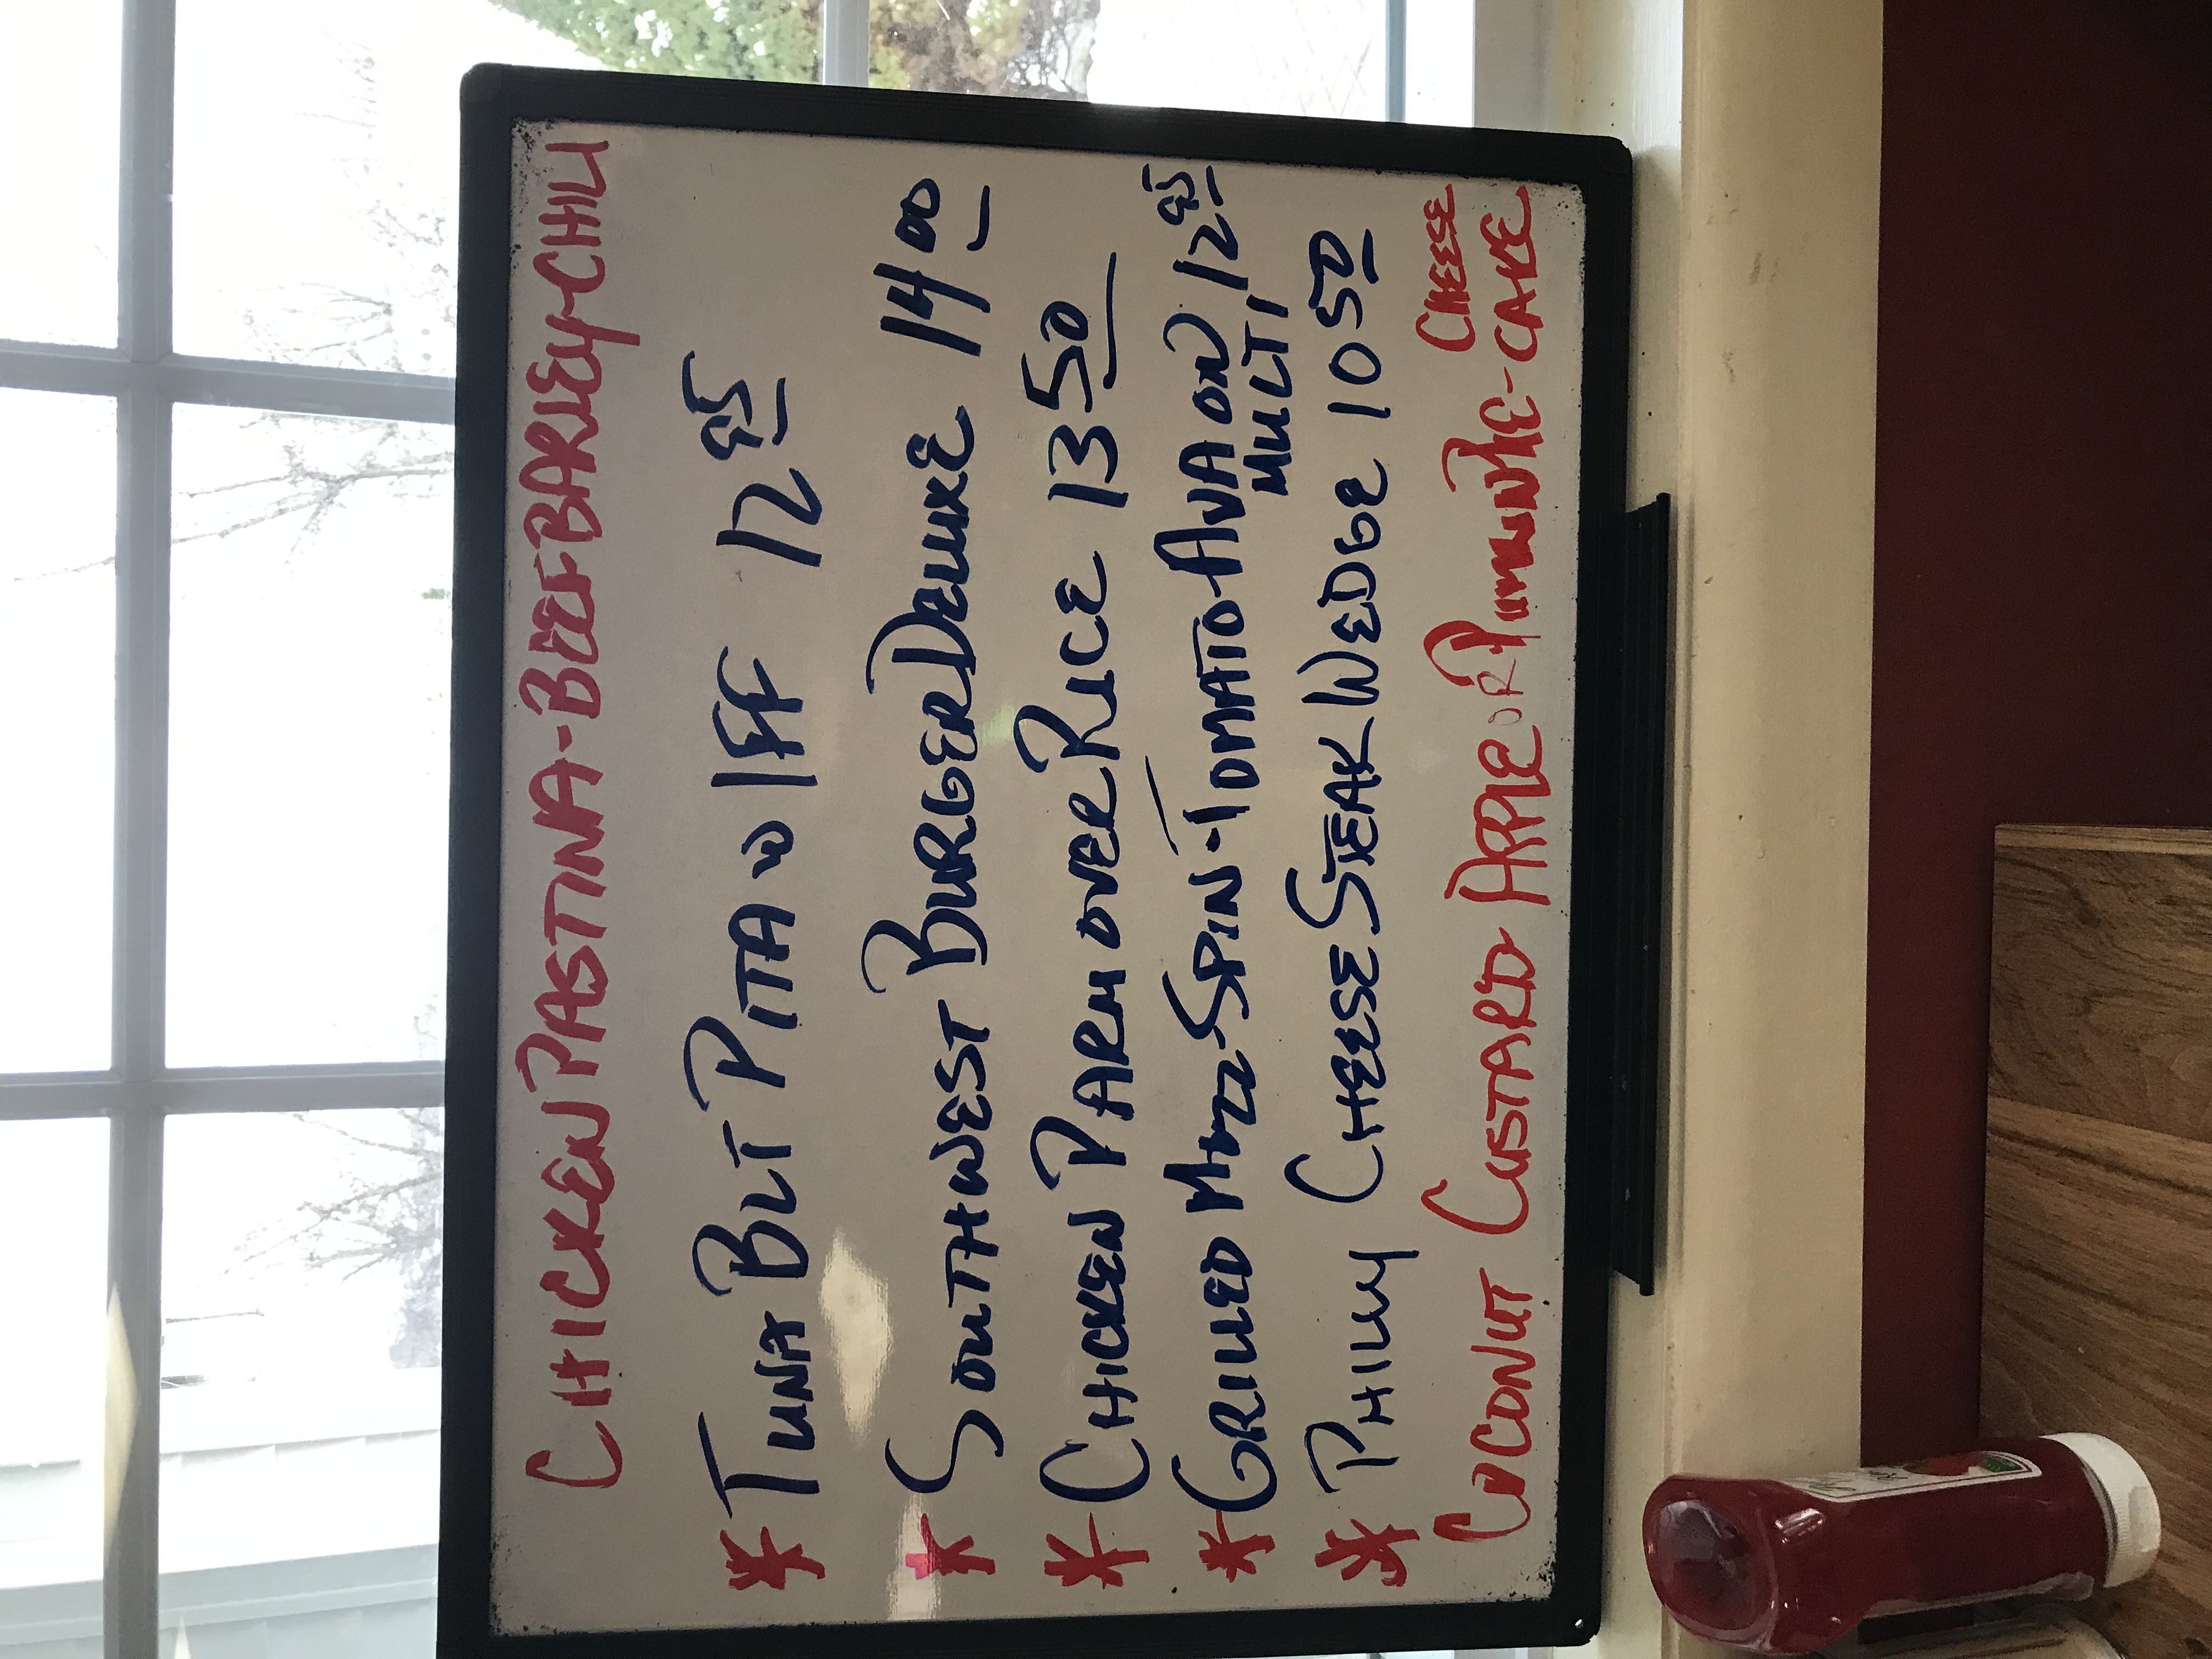 CHICKEN PASTINA - BEEF BARLEY - CHILI
* TUNA BLT PITA W/FF 12 95
* SOUTHWEST BURGER DELUXE 14 00
* CHICKEN PARM OVER RICE 13 50
* GRILLED MUZZ-SPIN-TOMATO-AVA ON MULTI, 12 95
* PHILLY CHEESE STEAK WEDGE 10 50
COCONUT CUSTARD APPLE OR PUMPKIN PIE - CHEESE CAKE